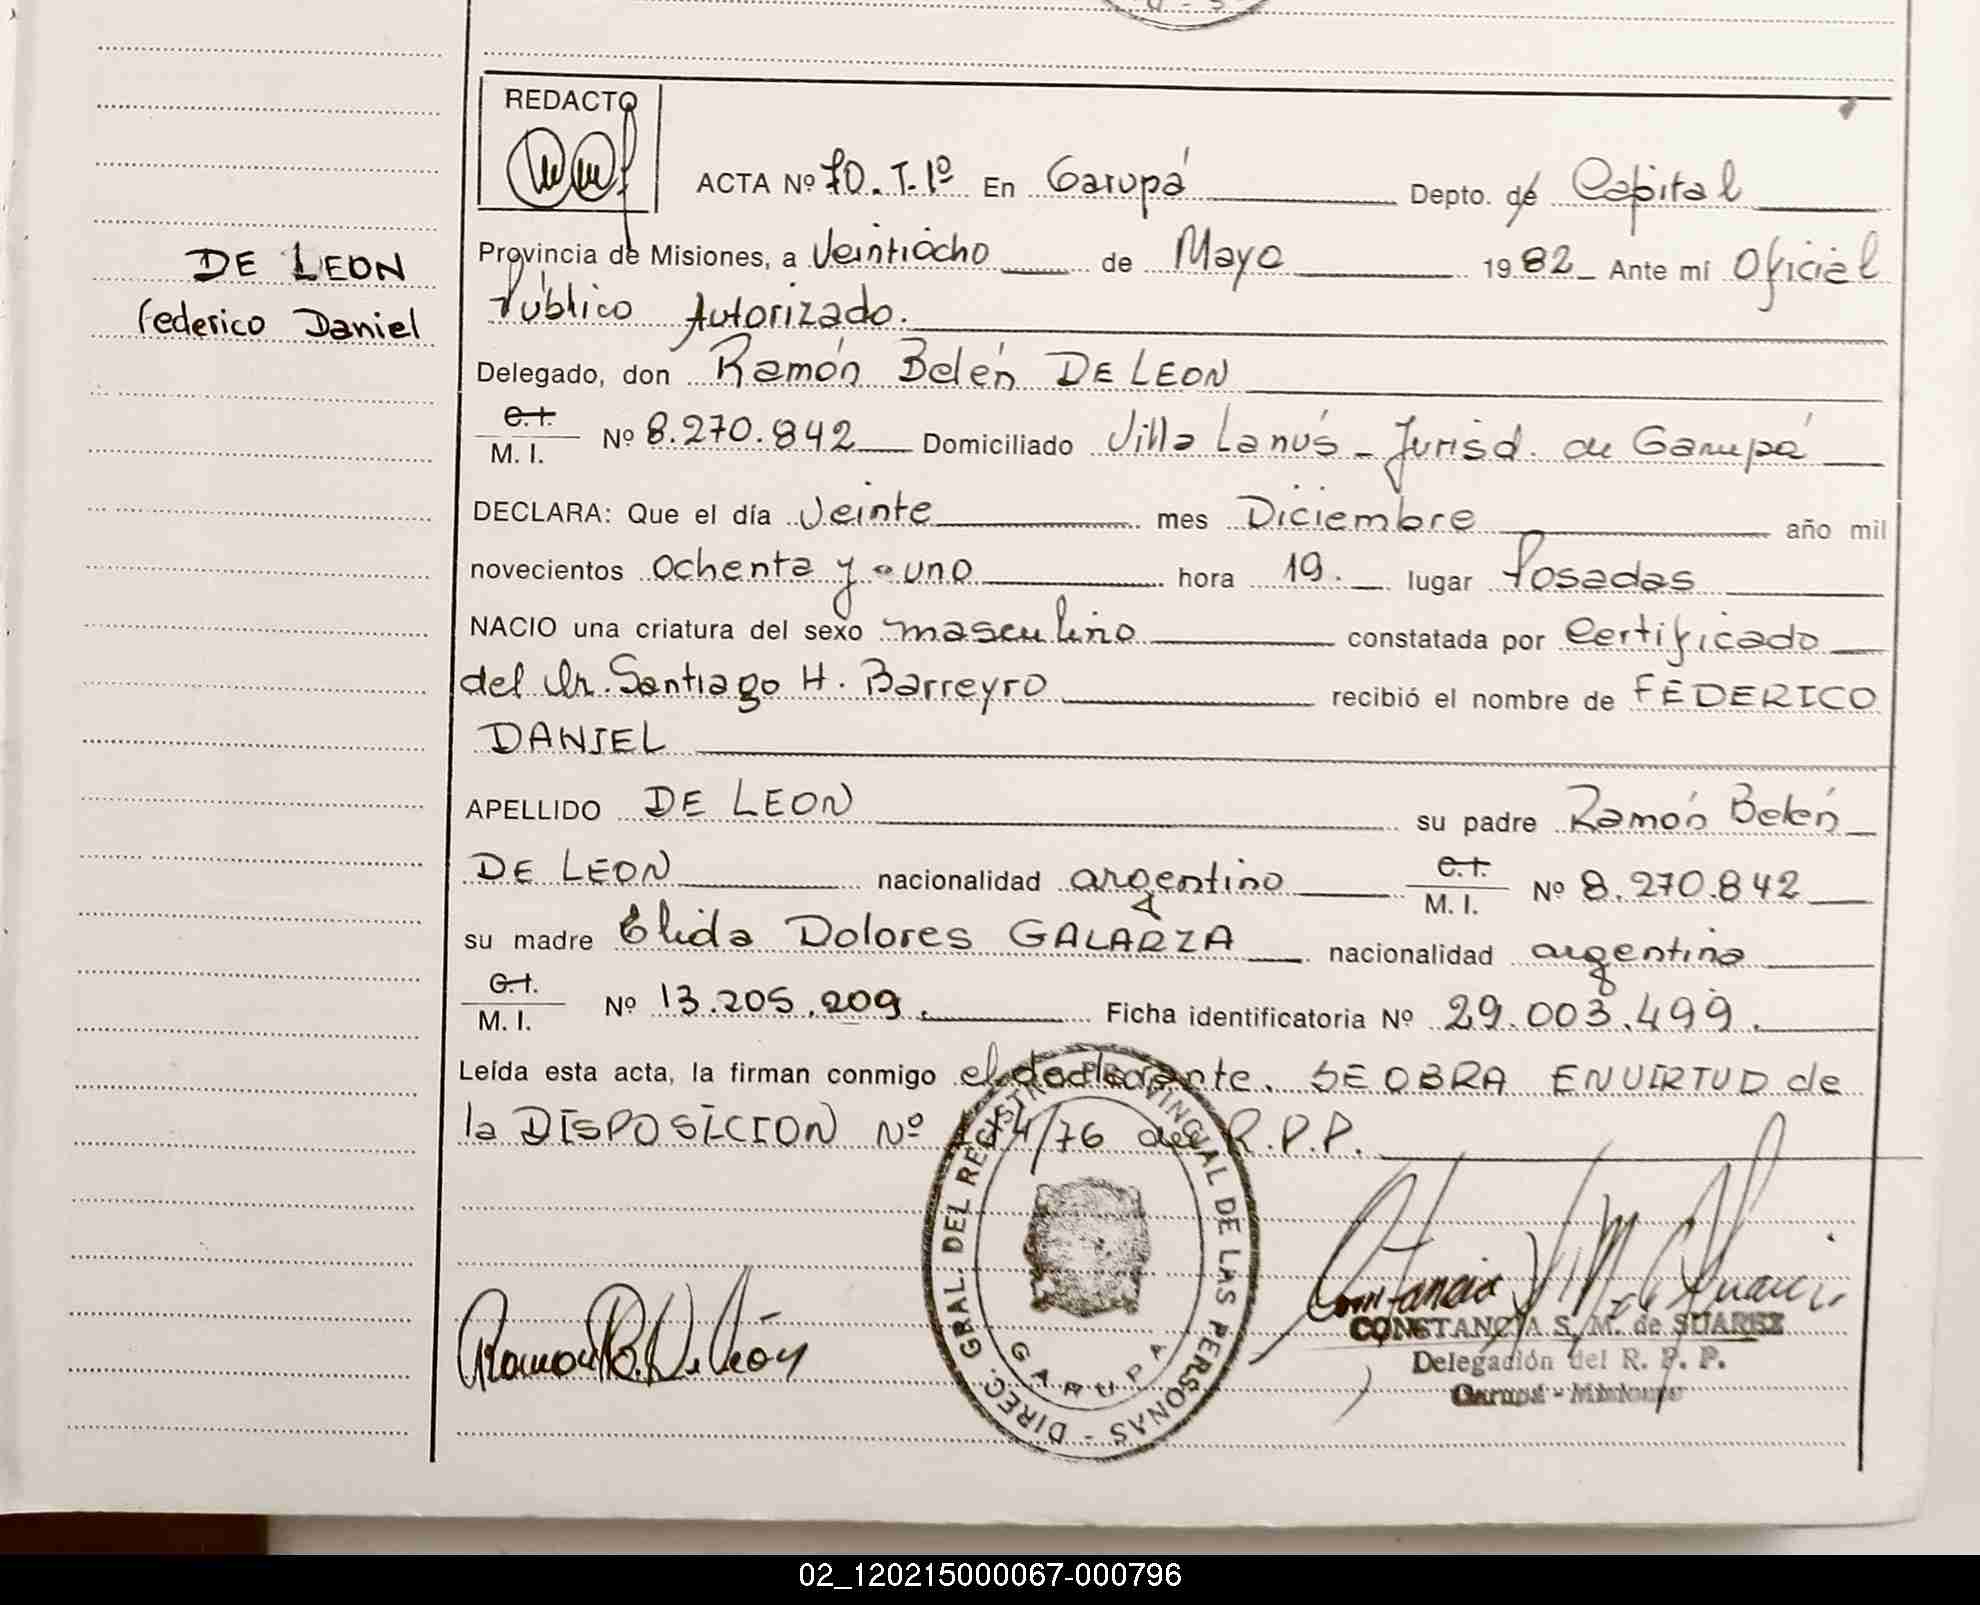 REDACTO
ACTA Nº 70. T. 1º En Garupá Depto. de Capital
DE LEON
Federico Daniel
Provincia de Misiones, a Veintiocho de Mayo 1982 Ante mí Oficial
Público Autorizado.
Delegado, don Ramón Belén DE LEON
C.I.
M. I. Nº 8.270.842 Domiciliado Villa Lanús - Jurisd. de Garupá
DECLARA: Que el día Veinte mes Diciembre año mil
novecientos ochenta y uno hora 19. lugar Posadas
NACIO una criatura del sexo masculino constatada por Certificado
del Dr. Santiago H. Barreyro recibió el nombre de FEDERICO
DANIEL
APELLIDO DE LEON su padre Ramón Belén
DE LEON nacionalidad argentino C.I.
M. I. Nº 8.270.842
su madre Elida Dolores GALARZA nacionalidad argentina
C.I.
M. I. Nº 13.205.209. Ficha identificatoria Nº 29.003.499.
Leída esta acta, la firman conmigo el declarante. SE OBRA EN VIRTUD de
la DISPOSICION Nº /76 del R.P.P.
DIREC. GRAL. DEL REGISTRO PROVINCIAL DE LAS PERSONAS -
GARUPA
Ramon B. De León
CONSTANCIA S. M. de SUAREZ
Delegación del R. P. P.
Garupá - Misiones
02_120215000067-000796